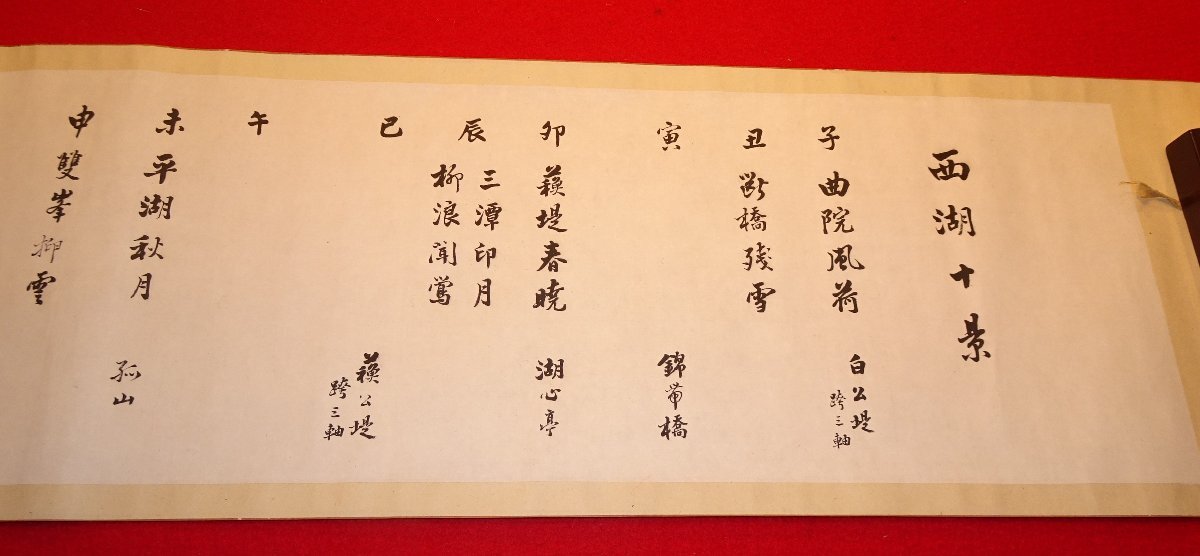 西湖十景
子 曲院風荷 白公堤
跨三軸
丑 断橋残雪
寅 錦帯橋
卯 蘓堤春暁 湖心亭
辰 三潭印月
柳浪聞鶯
巳 蘓公堤
跨三軸
午
未 平湖秋月 孤山
申 雙峯挿雲